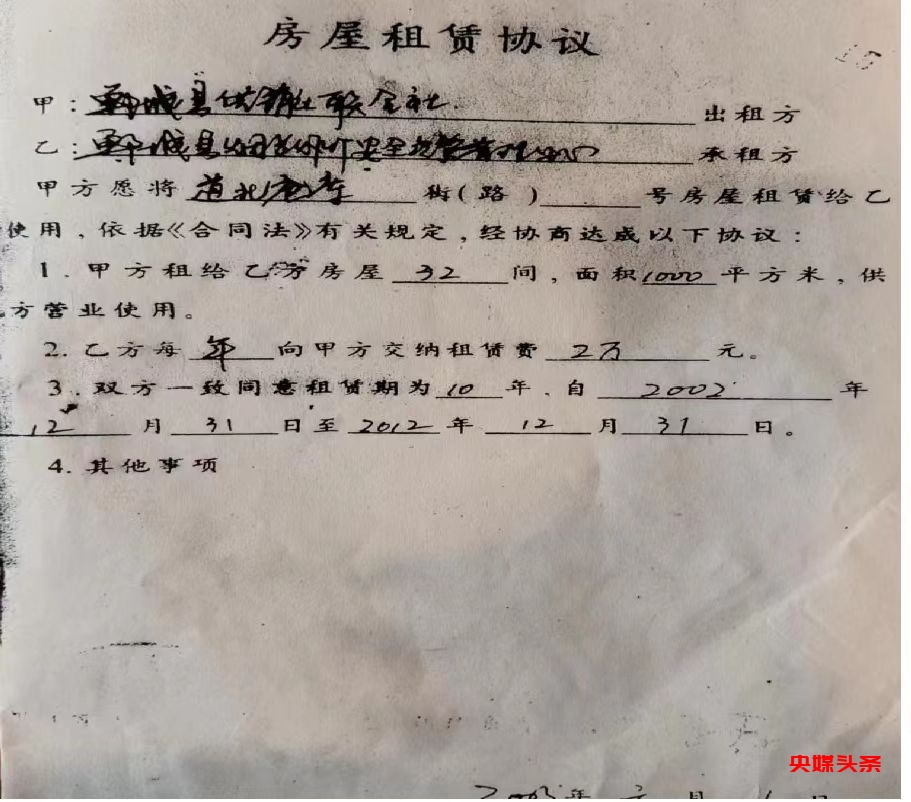 房屋租赁协议
甲：郸城县供销社联合社 出租方
乙：郸城县 安全 管理 承租方
甲方愿将 道北 街(路) 号房屋租赁给乙
使用，依据《合同法》有关规定，经协商达成以下协议：
1.甲方租给乙方房屋 32 间，面积1000平方米，供
方营业使用。
2.乙方每 年 向甲方交纳租赁费 2万 元。
3.双方一致同意租赁期为 10 年、自 2002 年
12 月 31 日至 2012 年 12 月 31 日。
4.其他事项
央媒头条
2003年 月 日